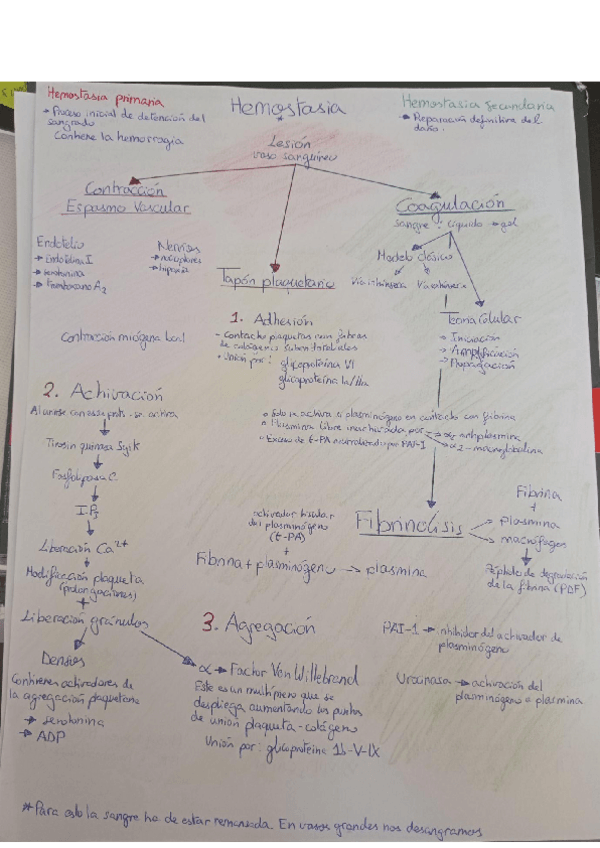 Hemostasia primaria
→ Proceso inicial de detención del
sangrado
Contiene la hemorragia
Hemostasia
Hemostasia secundaria
→ Reparación definitiva del
daño.
Lesión
vaso sanguíneo
Contracción
Espasmo Vascular
Coagulación
sangre : líquido → gel
Endotelio
→ Endotelina I
→ serotonina
→ Tromboxano A2
Nervios
→ nociceptores
→ hipoxia
Modelo clásico
Vía intrínseca
Vía extrínseca
Tapón plaquetario
Contracción miógena local
1. Adhesión
- Contacto plaquetas con fibras
de colágeno subendoteliales
• Unión por: glicoproteína VI
glicoproteína Ia/IIa
Teoría celular
→ Iniciación
→ Amplificación
→ Propagación
2. Activación
Al unirse con esa prot.
Tirosin quinasa Syk
Fosfolipasa C
IP3
Liberación Ca2+
Modificación plaqueta
(prolongaciones)
+
Liberación gránulos
Densos
Contienen activadores de
la agregación plaquetaria
→ serotonina
→ ADP
• Solo se activa el plasminógeno en contacto con fibrina
• Plasmina libre inactivada por → α2 antiplasmina
→ α2-macroglobulina
• Exceso de t-PA controlado por PAI-I
Fibrinólisis
Fibrina
+
→ plasmina
→ macrófagos
Péptidos de degradación
de la fibrina (PDF)
activador tisular
del plasminógeno
(t-PA)
+
Fibrina + plasminógeno → plasmina
3. Agregación
α → Factor Von Willebrand
Este es un multímero que se
despliega aumentando los puntos
de unión plaqueta-colágeno
Unión por: glicoproteína 1b-V-IX
PAI-1 → inhibidor del activador de
plasminógeno
Uroquinasa → activación del
plasminógeno a plasmina
*Para esto la sangre ha de estar remansada. En vasos grandes nos desangramos